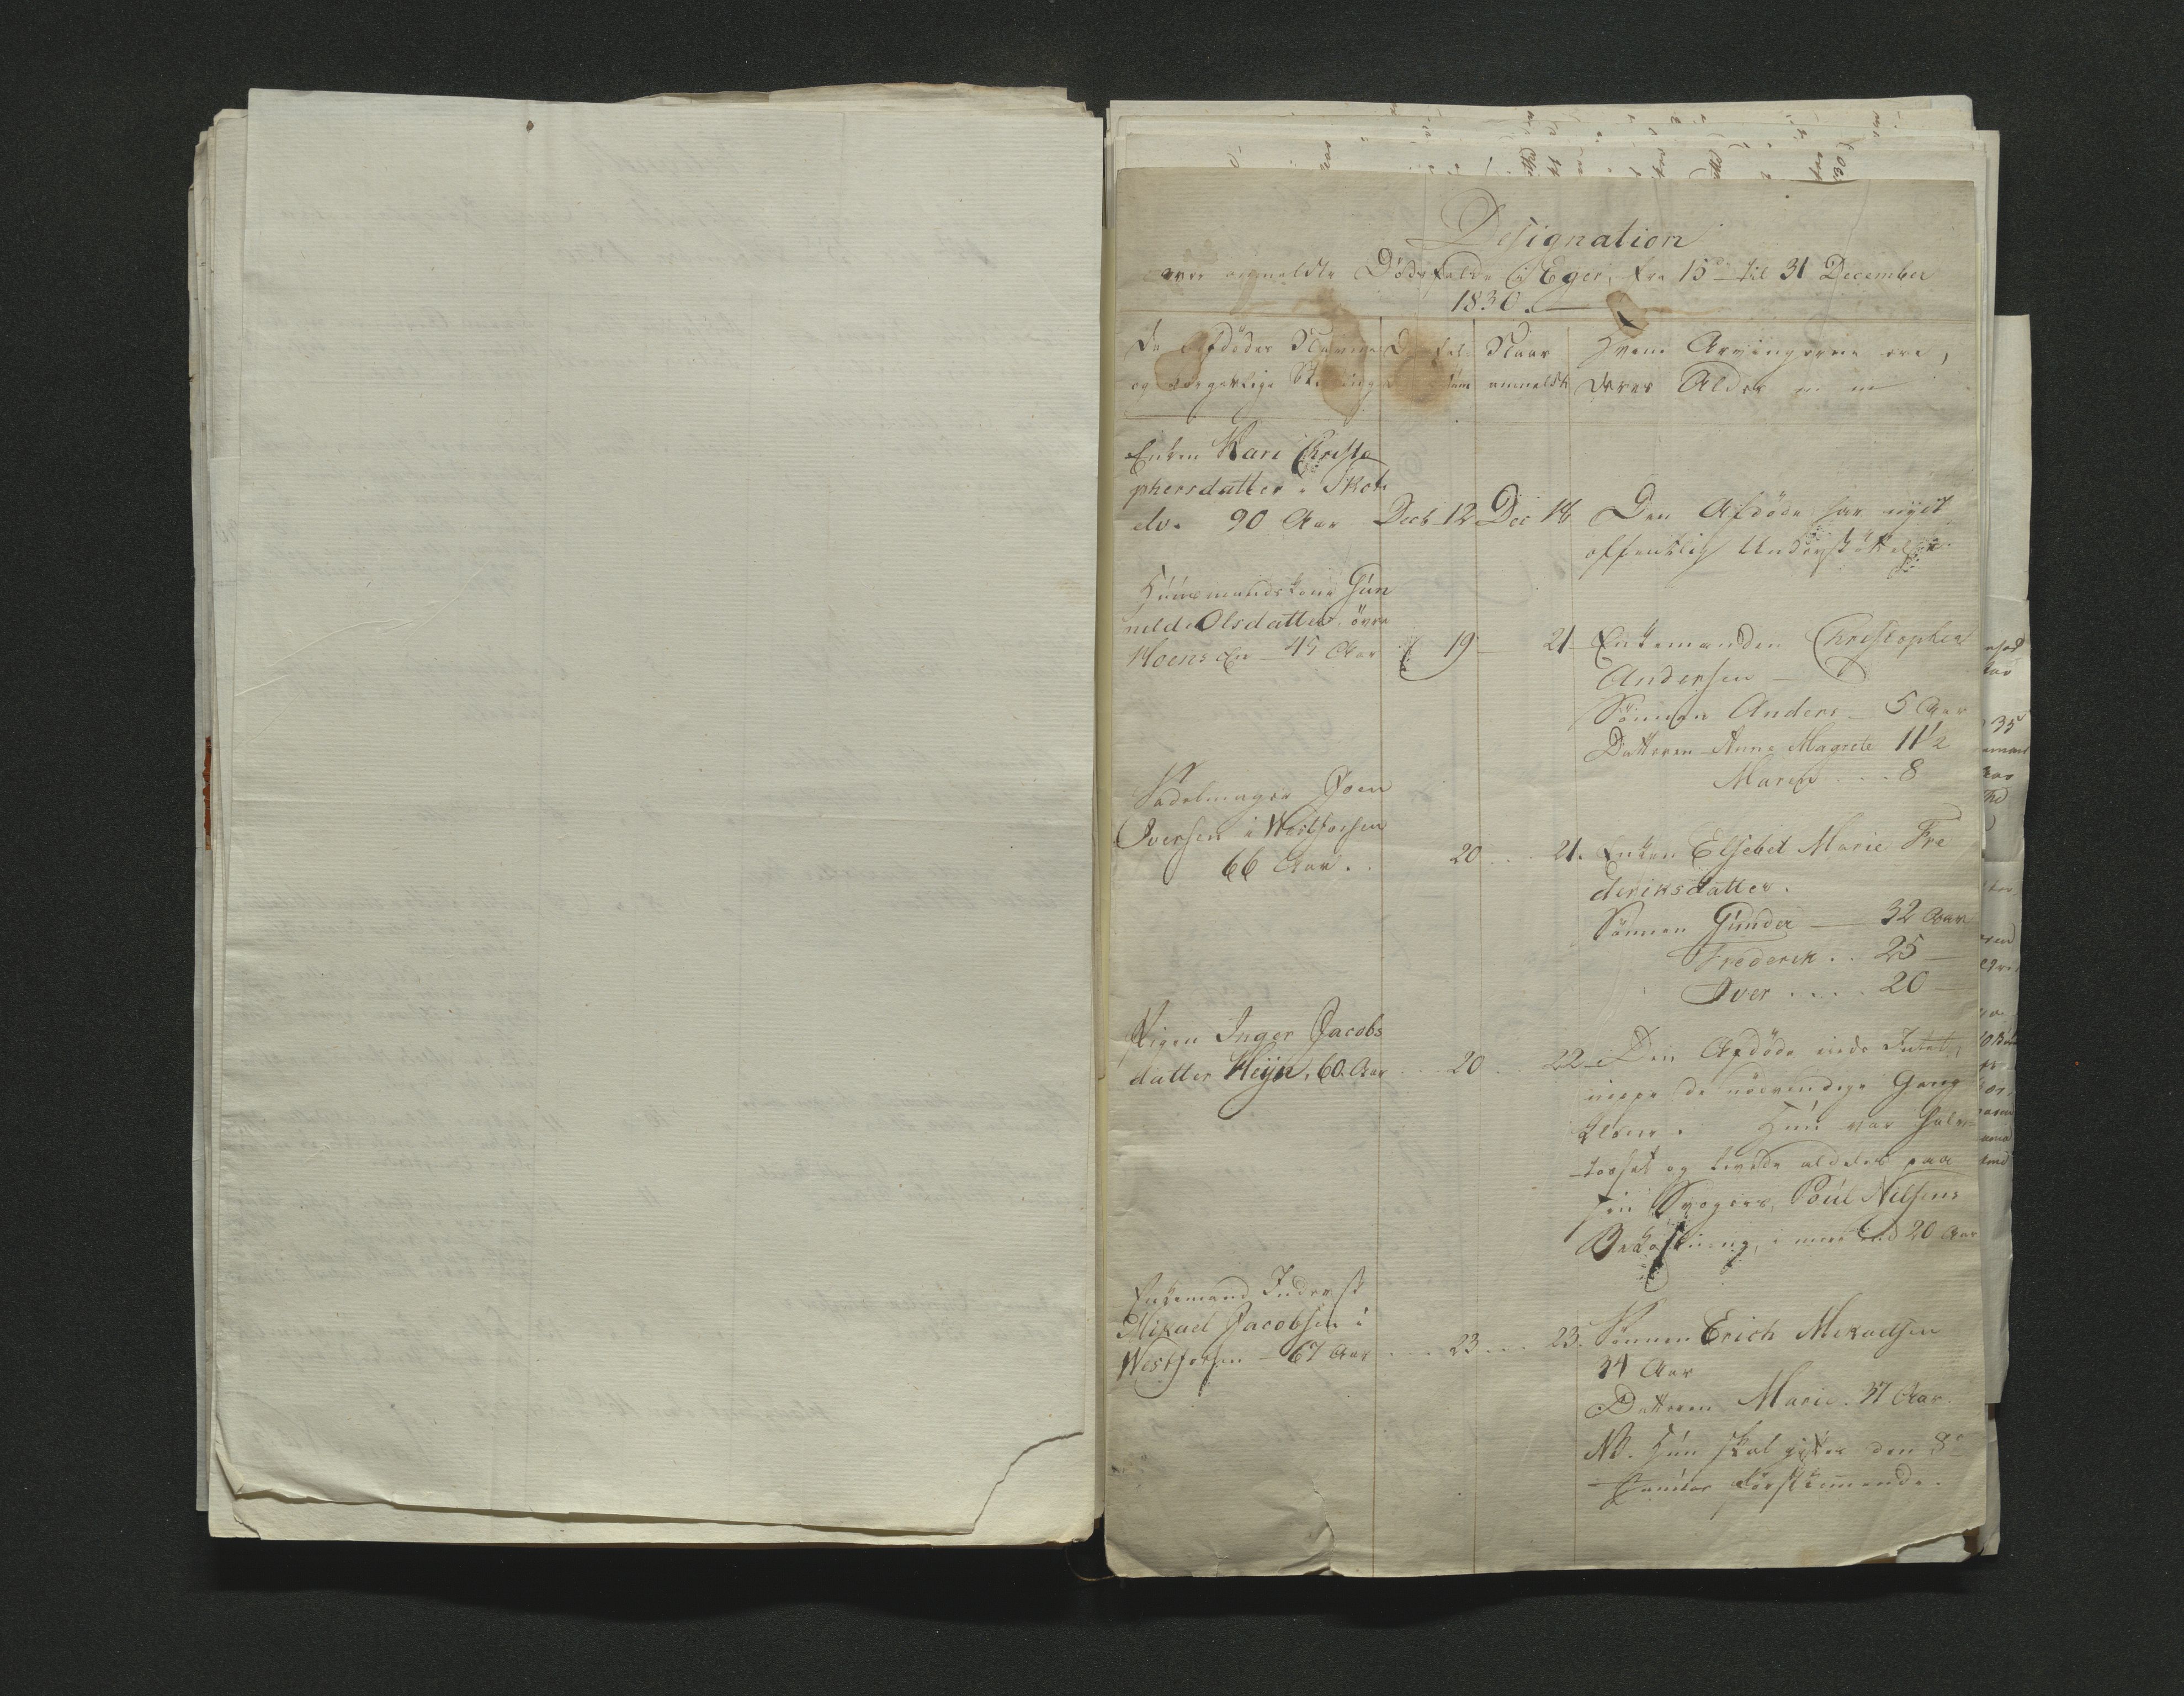 Designation
over anmeldte Dödsfald i Eger, fra 15de til 31 December
1830.
De Afdödes Navne Dödsfal Naar Hvem Arvingerne ere,
og borgerlige Stilling anmeldt deres Alder m m
Enken Kari Christo
phersdatter i Skots
elv. 90 Aar Decb 12 Dec 18 Den Afdöde har nydt
offentlig Understöttelse
Huusmandskone Gun
nild Olsdatter, övre
Hoens Eie 45 Aar 19 21 Enkemanden Christopher
Andersen
Sönnen Anders 5 Aar
Datteren Anne Magrete 11 1/2
Maren 8
Sadelmager Joen
Iversen i Westfossen
66 Aar. 20 21. Enken Elsebet Marie Fre
deriksdatter.
Sönnen Gunder 32 Aar
Frederik 25
Iver 20
Pigen Inger Jacobs
datter Heyn, 60 Aar 20 22 Den Afdöde eiede Intet,
uden de nödvendige Gang
klæder. Hun var halv
tosset og levede aldeles paa
sin Svogers, Poul Nilsens
Bekostning, i mere end 20 Aar
Enkemand Inderst
Mikael Jacobsen i
Westfossen 67 Aar 23 23. Sönnen Erich Mikaelsen
34 Aar
Datteren Marie 37 Aar.
NB. Hun skal giftes den 8de
Januar förstkommende.